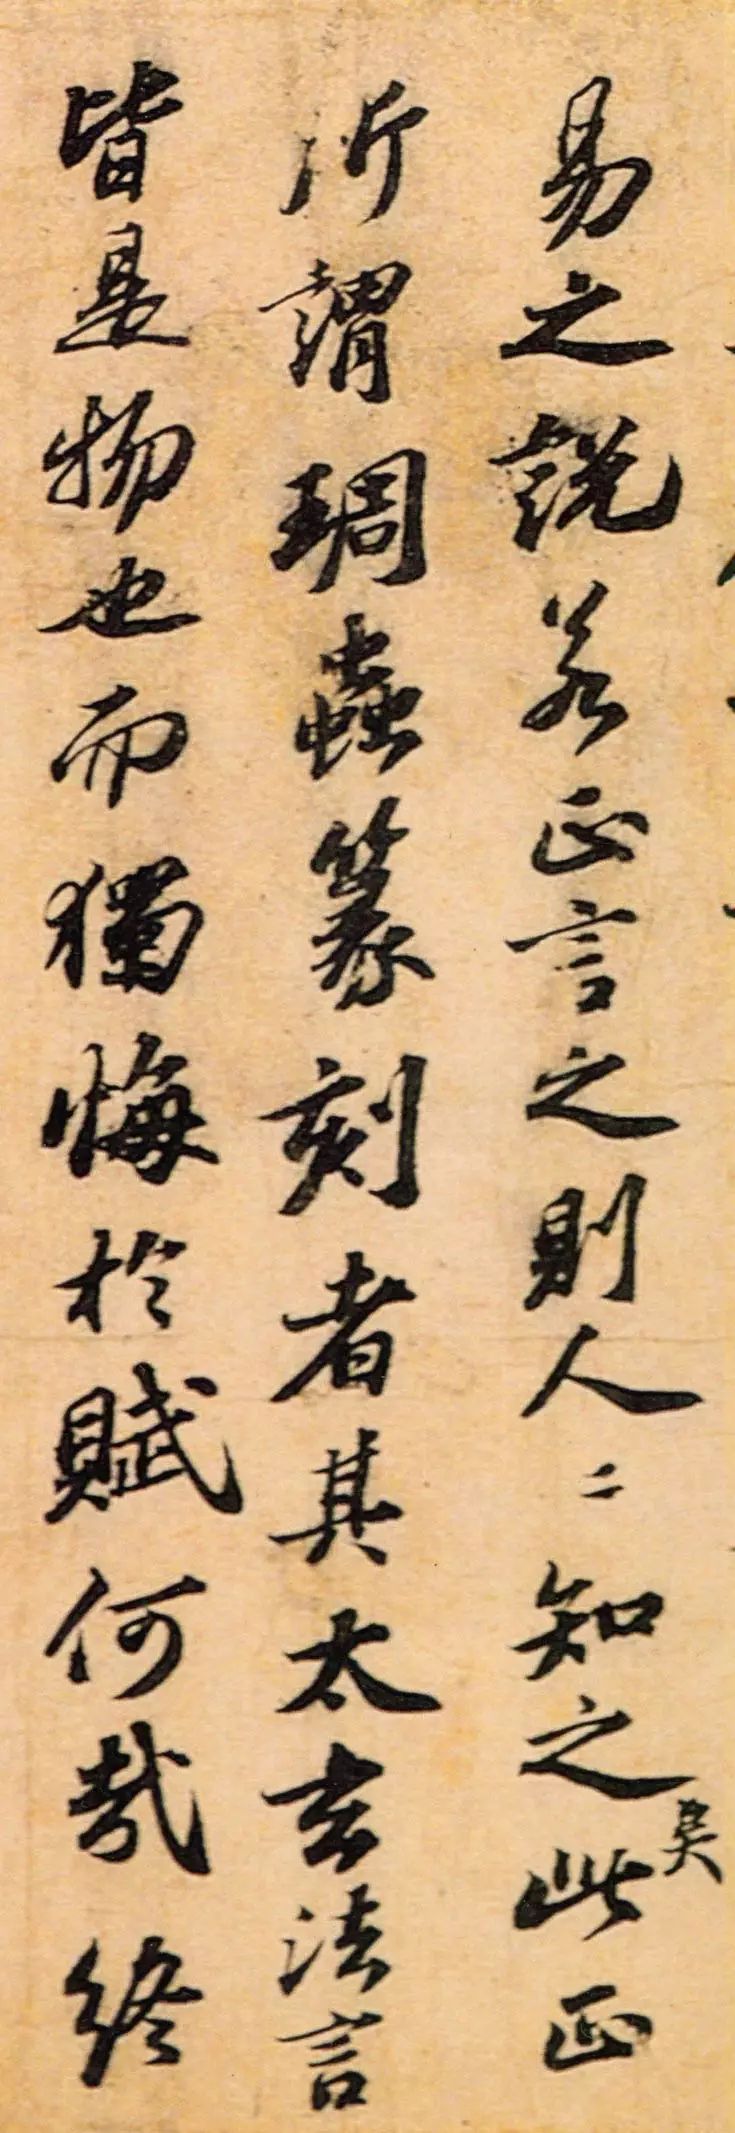 易之說若正言之則人二知之矣此正
所謂琱蟲篆刻者其太玄法言
皆是物也而獨悔於賦何哉終